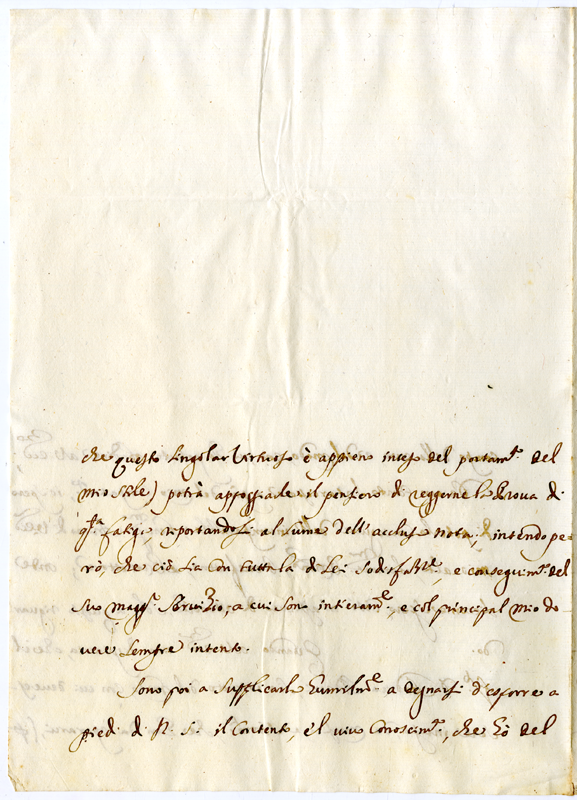 che questo singolar Virtuoso è appieno inteso del portam.to del
mio stile) potrà appoggiade il pensiero di reggerne la prova di
q.ta fatiga riportandosi al lume dell'accluso nota; intendo pe=
rò, che ciò sia con tutta la di Lei sodisfaz.e, e conseguim.to del
suo magg.r servizio, a cui sono intieram.e, e col principal mio do
vere sempre intento.
Sono poi a supplicarla humilm.e a degnarsi d'esporre a
piedi di N. S. il contento, e'l vivo conoscim.to, che hò del